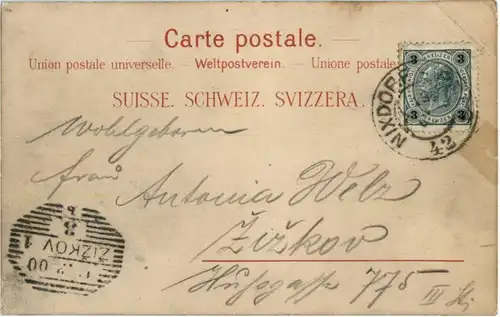 Carte postale.
Union postale universelle. — Weltpostverein. — Unione postale
SUISSE. SCHWEIZ. SVIZZERA.
3 3
3 3
NIXDORF
42
Wohlgeboren
Frau Antonia Welz
Žižkov
Hussgasse 775
III
ŽIŽKOV 1
3
00